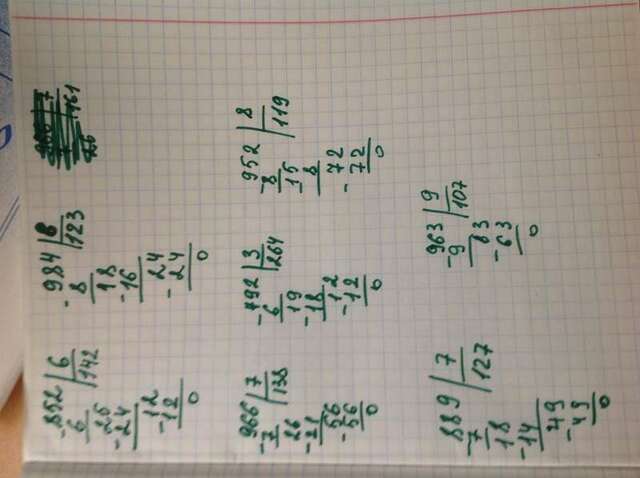 -852 | 6
6 | 142
25
-24
12
-12
0
-984 | 8
8 | 123
18
-16
24
-24
0
-966 | 7
7 | 138
26
-21
56
-56
0
-792 | 3
6 | 264
19
-18
12
-12
0
952 | 8
-8 | 119
15
8
72
-72
0
889 | 7
-7 | 127
18
-14
49
-49
0
963 | 9
-9 | 107
63
-63
0